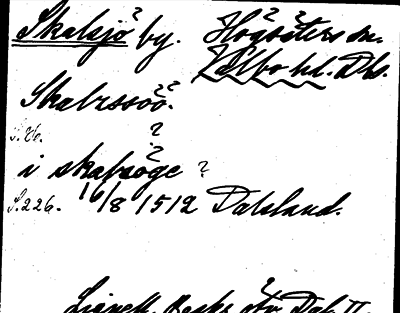 Skalsjö by. Högsäters sn.
Valbo hd. Dls.
Skalzssöö.
S. 26. ?
i skalzöge ?
S. 226. 16/8 1512 Dalsland.
Lignell, Beskr. öfv. Dal II.